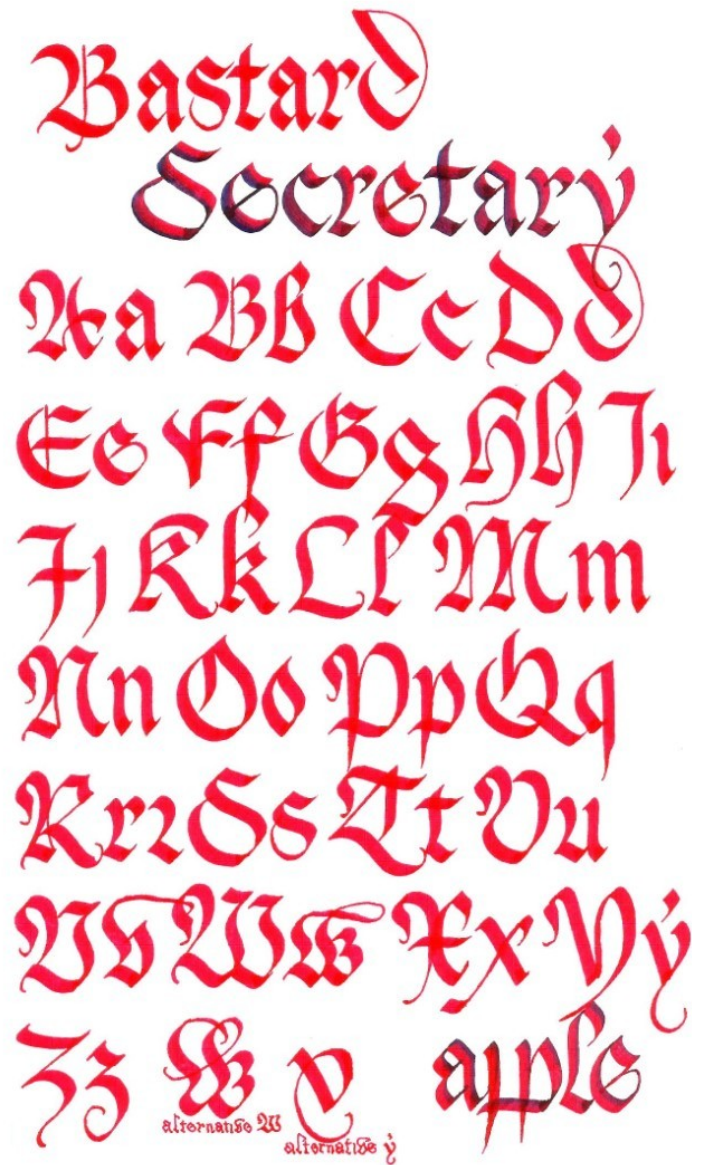 Bastard
Secretary
Aa Bb Cc Dd
Ee Ff Gg Hh Ii
Jj Kk Ll Mm
Nn Oo Pp Qq
Rrr Ss Tt Uu
Vv Ww Xx Yy
Zz W y apple
alternative W
alternative y